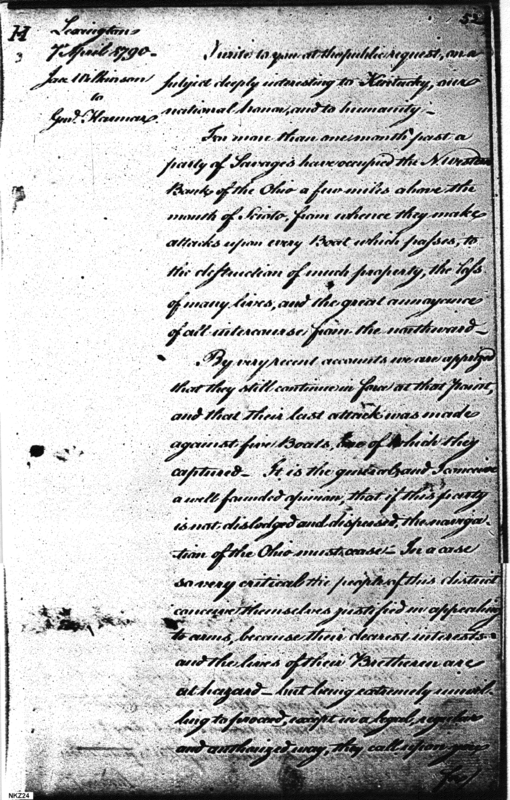 H
52
Lexington
7 April 1790 -
Jas. Wilkinson
to
Genl. Harmar
I write to you at the public request, on a
subject deeply interesting to Kentucky, our
national honor, and to humanity -
For more than one month past a
party of Savages have occupied the N. Western
Bank of the Ohio a few miles above the
mouth of Scioto, from whence they make
attacks upon every Boat which passes, to
the destruction of much property, the loss
of many lives, and the great annoyance
of all intercourse from the northward -
By very recent accounts we are apprized
that they still continue in force at that Point,
and that their last attack was made
against five Boats, two of which they
captured - It is the general, and I conceive
a well founded opinion, that if this party
is not dislodged and dispersed, the naviga-
tion of the Ohio must cease - In a case
so very critical the people of this district
conceive themselves justified in appealing
to arms, because their dearest interests
and the lives of their Bretheren are
at hazard - but being extremely unwil-
ling to proceed, except in a legal, regular
and authorized way, they call upon you
for
NKZ24